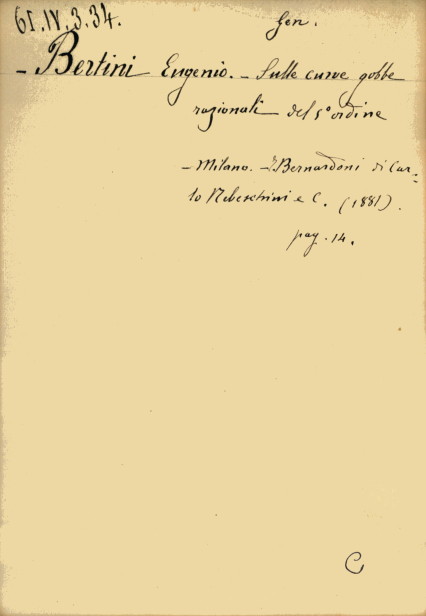 61.IV.3.34.
Gen.
- Bertini Eugenio. - Sulle curve gobbe
razionali del 5° ordine
- Milano. - T. Bernardoni di Car-
lo Rebeschini e C. (1881).
pag. 14.
C